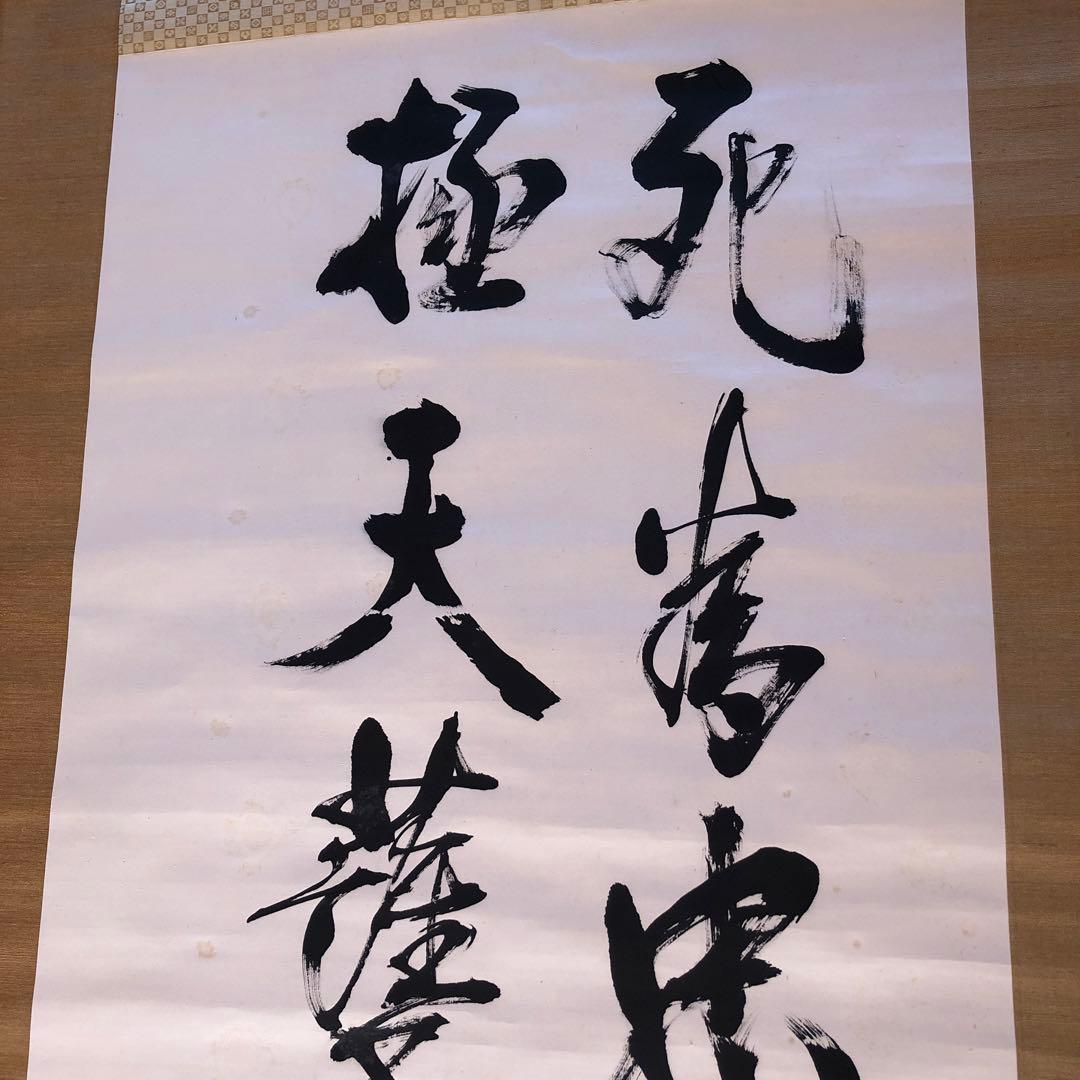 死為忠
極天護